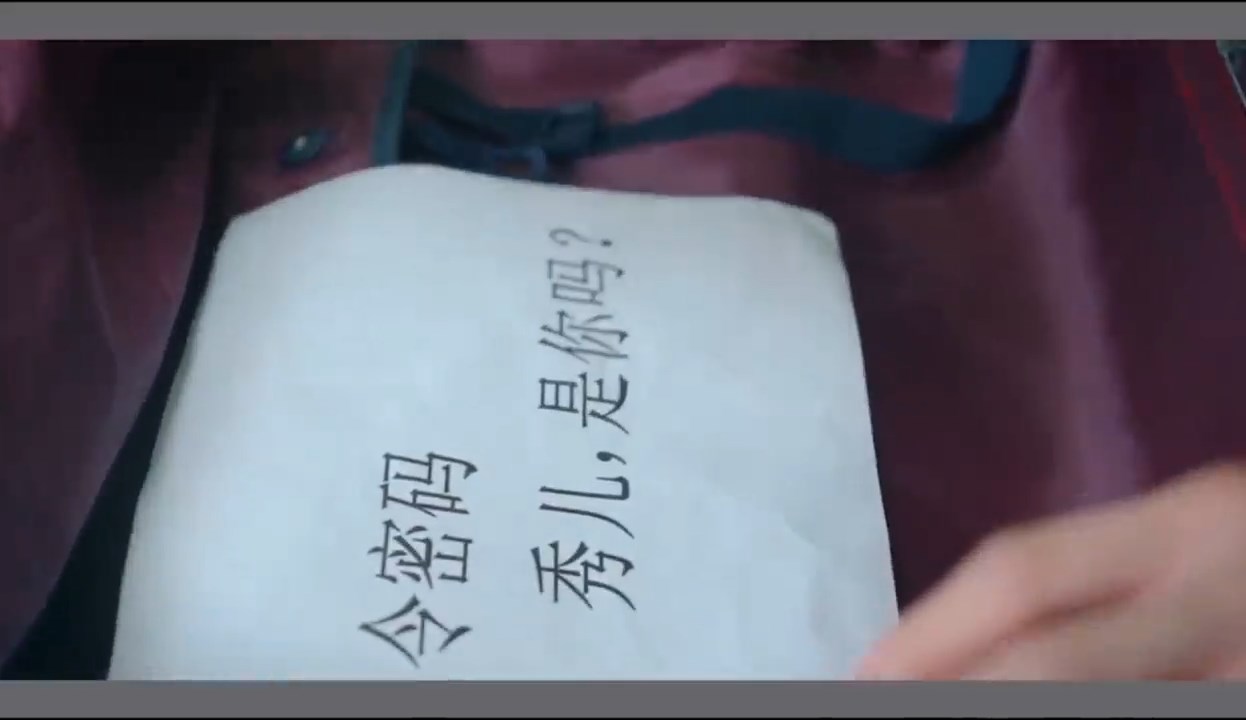 令密码
秀儿,是你吗?